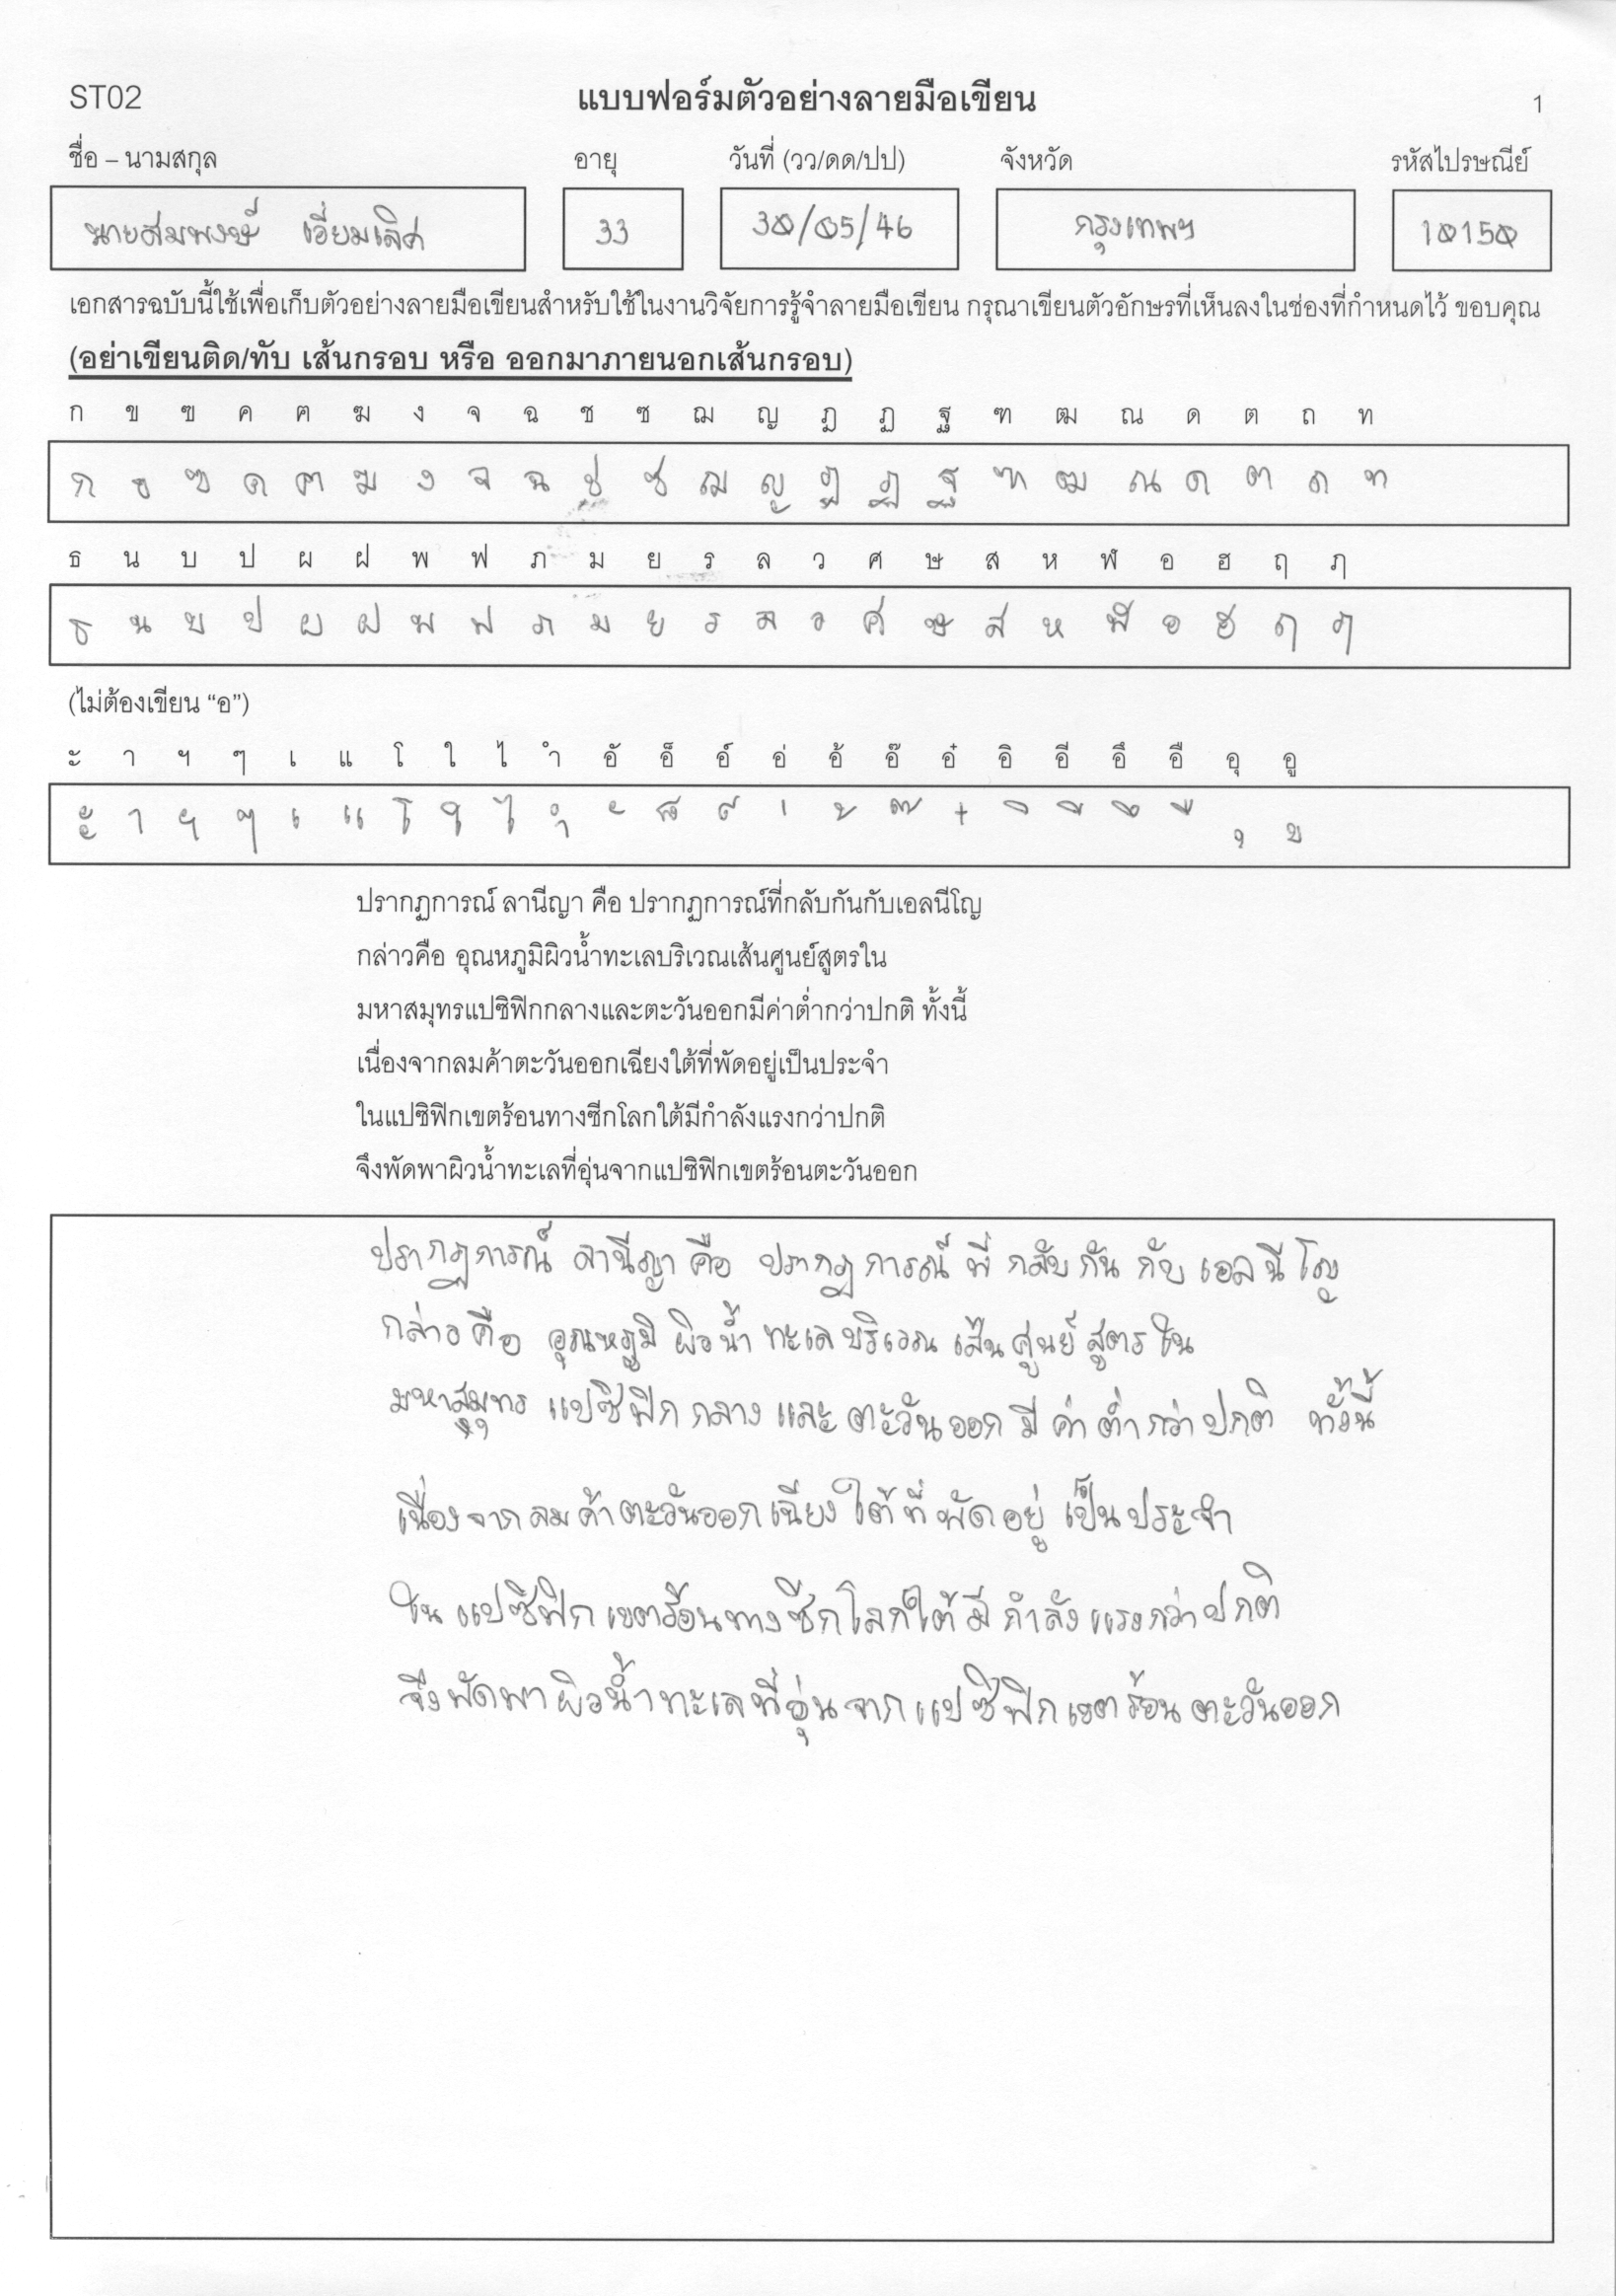 ST02 แบบฟอร์มตัวอย่างลายมือเขียน 1
ชื่อ – นามสกุล อายุ วันที่ (วว/ดด/ปป) จังหวัด รหัสไปรษณีย์
นายสมพงษ์ เอี่ยมเลิศ 33 30/05/46 กรุงเทพฯ 10150
เอกสารฉบับนี้ใช้เพื่อเก็บตัวอย่างลายมือเขียนสำหรับใช้ในงานวิจัยการรู้จำลายมือเขียน กรุณาเขียนตัวอักษรที่เห็นลงในช่องที่กำหนดไว้ ขอบคุณ
(อย่าเขียนติด/ทับ เส้นกรอบ หรือ ออกมาภายนอกเส้นกรอบ)
ก ข ฃ ค ฅ ฆ ง จ ฉ ช ซ ฌ ญ ฎ ฏ ฐ ฑ ฒ ณ ด ต ถ ท
ก ข ฃ ค ฅ ฆ ง จ ฉ ช ซ ฌ ญ ฎ ฏ ฐ ฑ ฒ ณ ด ต ถ ท
ธ น บ ป ผ ฝ พ ฟ ภ ม ย ร ล ว ศ ษ ส ห ฬ อ ฮ ฤ ฦ
ธ น บ ป ผ ฝ พ ฟ ภ ม ย ร ล ว ศ ษ ส ห ฬ อ ฮ ฤ ฦ
(ไม่ต้องเขียน “อ”)
ะ า ฯ ๆ เ แ โ ใ ไ ำ อั อ็ อ์ อ่ อ้ อ๊ อ๋ อิ อี อึ อื อุ อู
ะ า ฯ ๆ เ แ โ ใ ไ ำ ั ็ ์ ่ ้ ๊ ๋ ิ ี ึ ื ุ ู
ปรากฏการณ์ ลานีญา คือ ปรากฏการณ์ที่กลับกันกับเอลนีโญ
กล่าวคือ อุณหภูมิผิวน้ำทะเลบริเวณเส้นศูนย์สูตรใน
มหาสมุทรแปซิฟิกกลางและตะวันออกมีค่าต่ำกว่าปกติ ทั้งนี้
เนื่องจากลมค้าตะวันออกเฉียงใต้ที่พัดอยู่เป็นประจำ
ในแปซิฟิกเขตร้อนทางซีกโลกใต้มีกำลังแรงกว่าปกติ
จึงพัดพาผิวน้ำทะเลที่อุ่นจากแปซิฟิกเขตร้อนตะวันออก
ปรากฏการณ์ ลานีญา คือ ปรากฏการณ์ ที่ กลับ กัน กับ เอลนีโญ
กล่าว คือ อุณหภูมิ ผิวน้ำ ทะเล บริเวณ เส้น ศูนย์ สูตร ใน
มหาสมุทร แปซิฟิก กลาง และ ตะวันออก มี ค่า ต่ำ กว่า ปกติ ทั้งนี้
เนื่องจาก ลม ค้า ตะวันออก เฉียง ใต้ ที่ พัด อยู่ เป็น ประจำ
ใน แปซิฟิก เขตร้อนทางซีกโลกใต้ มี กำลัง แรงกว่า ปกติ
จึงพัดพา ผิวน้ำทะเลที่อุ่น จาก แปซิฟิก เขตร้อน ตะวันออก